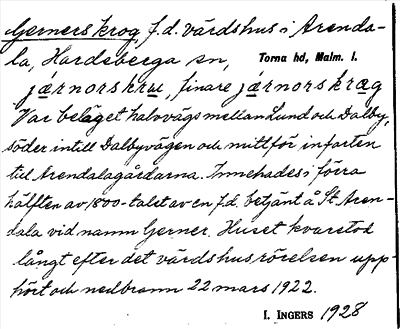 Gerners krog, f.d. värdshus i Arenda-
la, Hardeberga sn, Torna hd, Malm. l.
jærnorskru, finare jærnorskræg
Var beläget halvvägs mellan Lund och Dalby,
söder intill Dalbyvägen och mittför infarten
till Arendalagårdarna. Innehades i förra
hälften av 1800-talet av en f.d. betjänt å St. Aren-
dala vid namn Gerner. Huset kvarstod
långt efter det värdshusrörelsen upp-
hört och nedbrann 22 mars 1922.
I. INGERS 1928